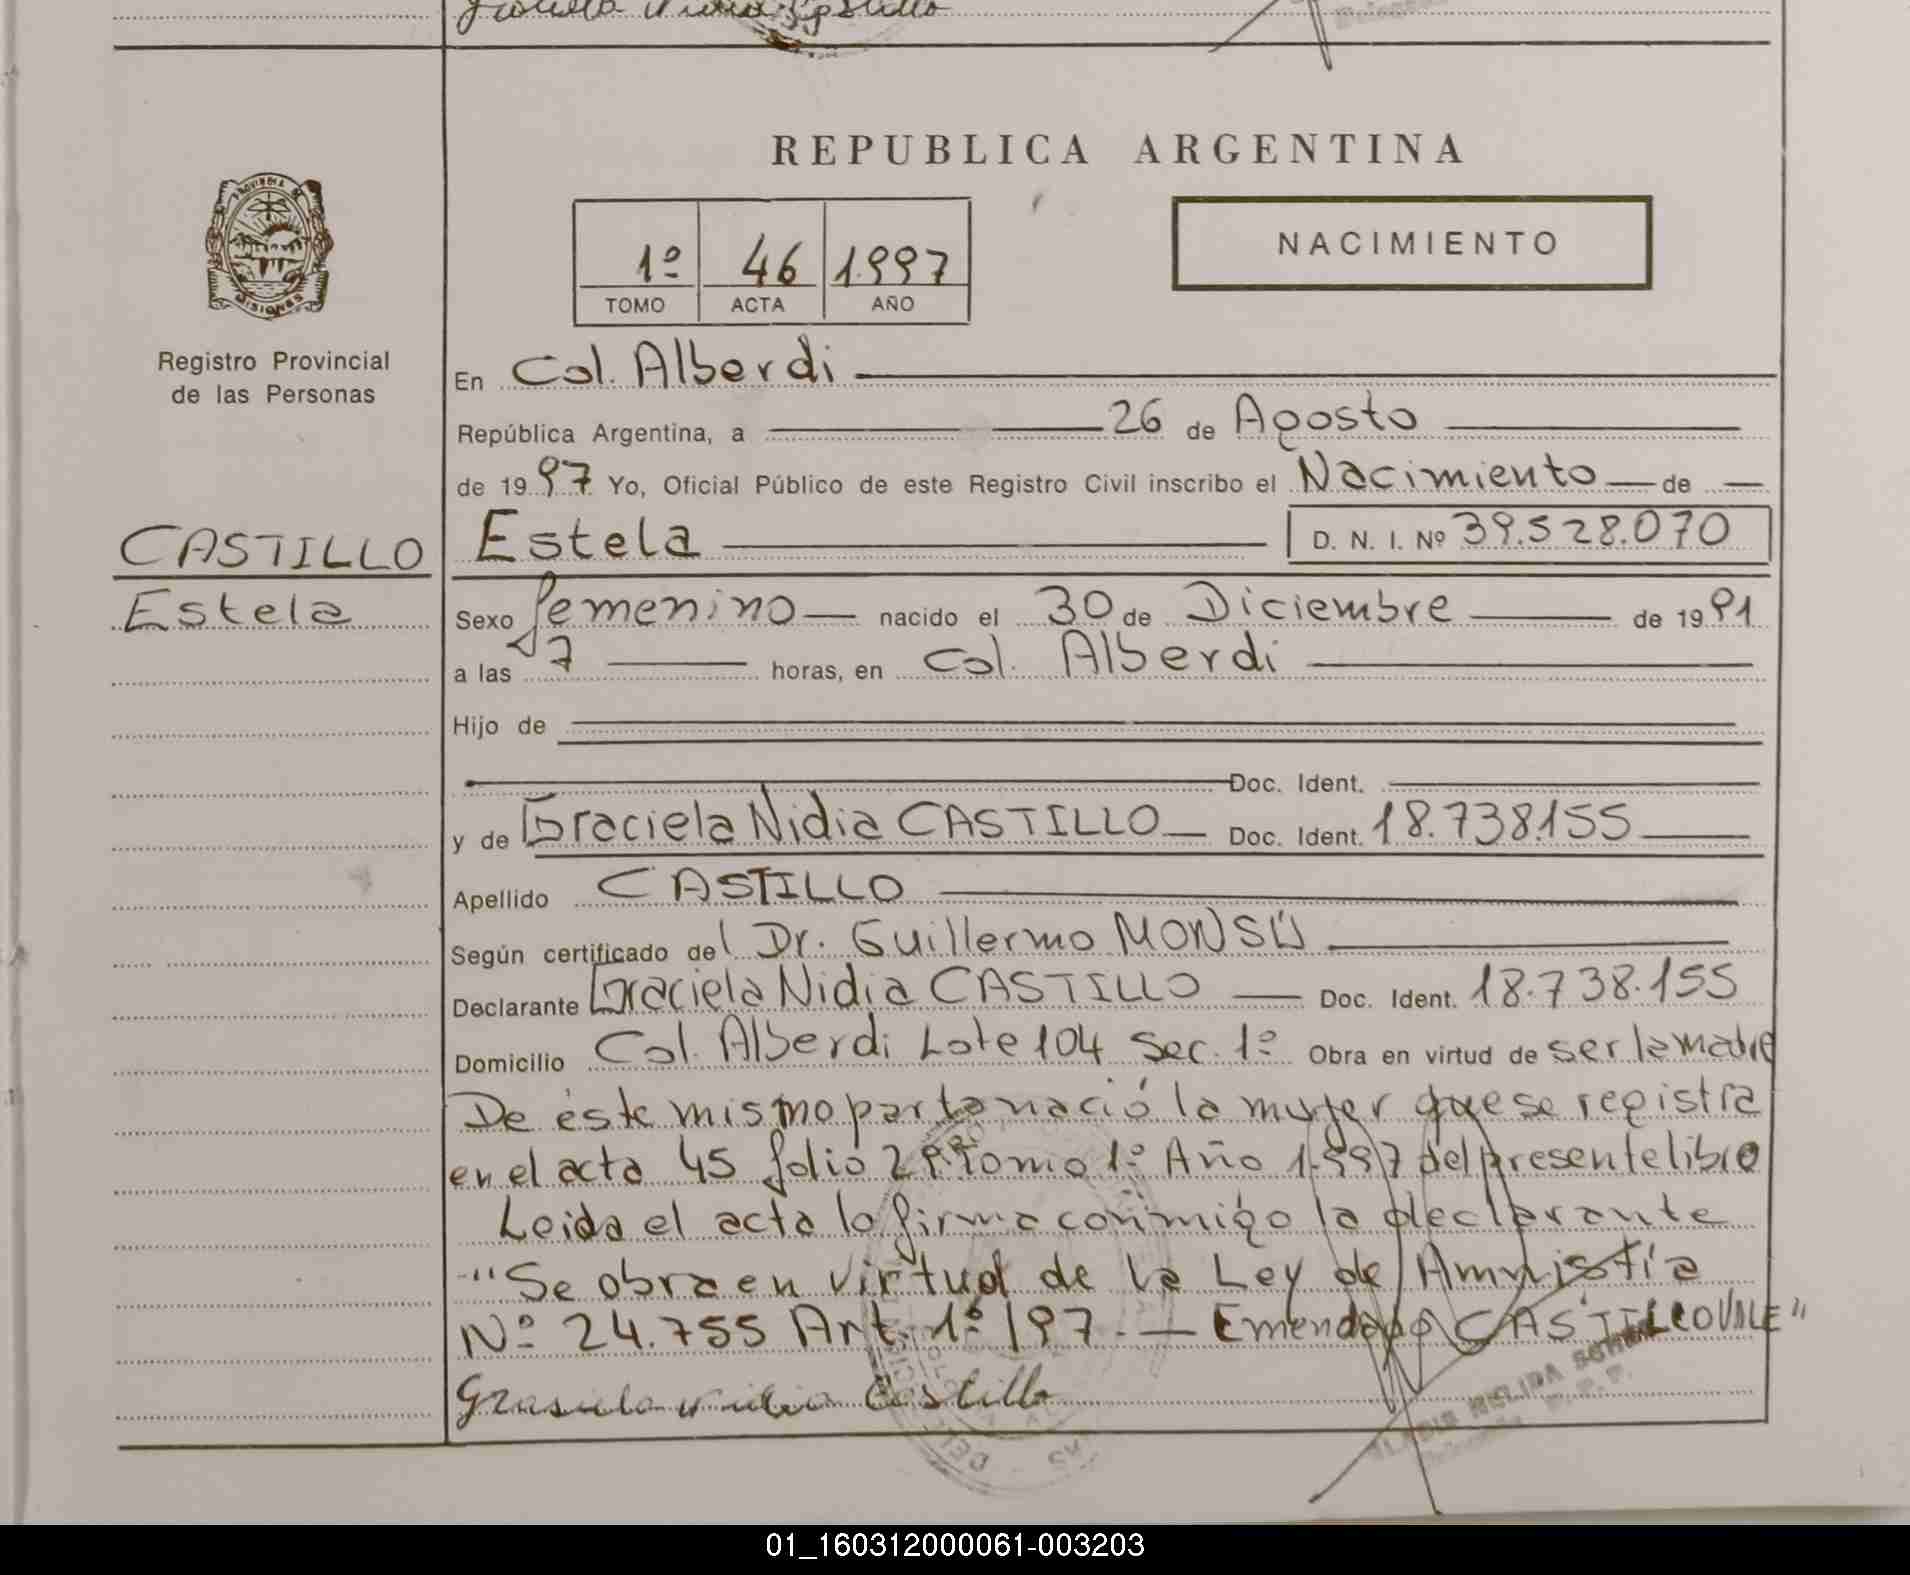 REPUBLICA ARGENTINA
PROVINCIA DE
MISIONES
Registro Provincial
de las Personas
1º 46 1997
TOMO ACTA AÑO
NACIMIENTO
En Col. Alberdi
República Argentina, a 26 de Agosto
de 1997 Yo, Oficial Público de este Registro Civil inscribo el Nacimiento de
CASTILLO
Estela
Estela D. N. I. Nº 39.528.070
Sexo femenino nacido el 30 de Diciembre de 1991
a las 7 horas, en Col. Alberdi
Hijo de
Doc. Ident.
y de Graciela Nidia CASTILLO Doc. Ident. 18.738.155
Apellido CASTILLO
Según certificado del Dr. Guillermo MONSÚ
Declarante Graciela Nidia CASTILLO Doc. Ident. 18.738.155
Domicilio Col. Alberdi Lote 104 Sec. 1º Obra en virtud de ser la madre
De éste mismo parto nació la mujer que se registra
en el acta 45 folio Tomo 1º Año 1.997 del presente libro
Leida el acta lo firma conmigo la declarante
"Se obra en virtud de la Ley de Amnistía
Nº 24.755 Art. 1º/97.— Emendado CASTILLO VALE"
Castillo
01_160312000061-003203